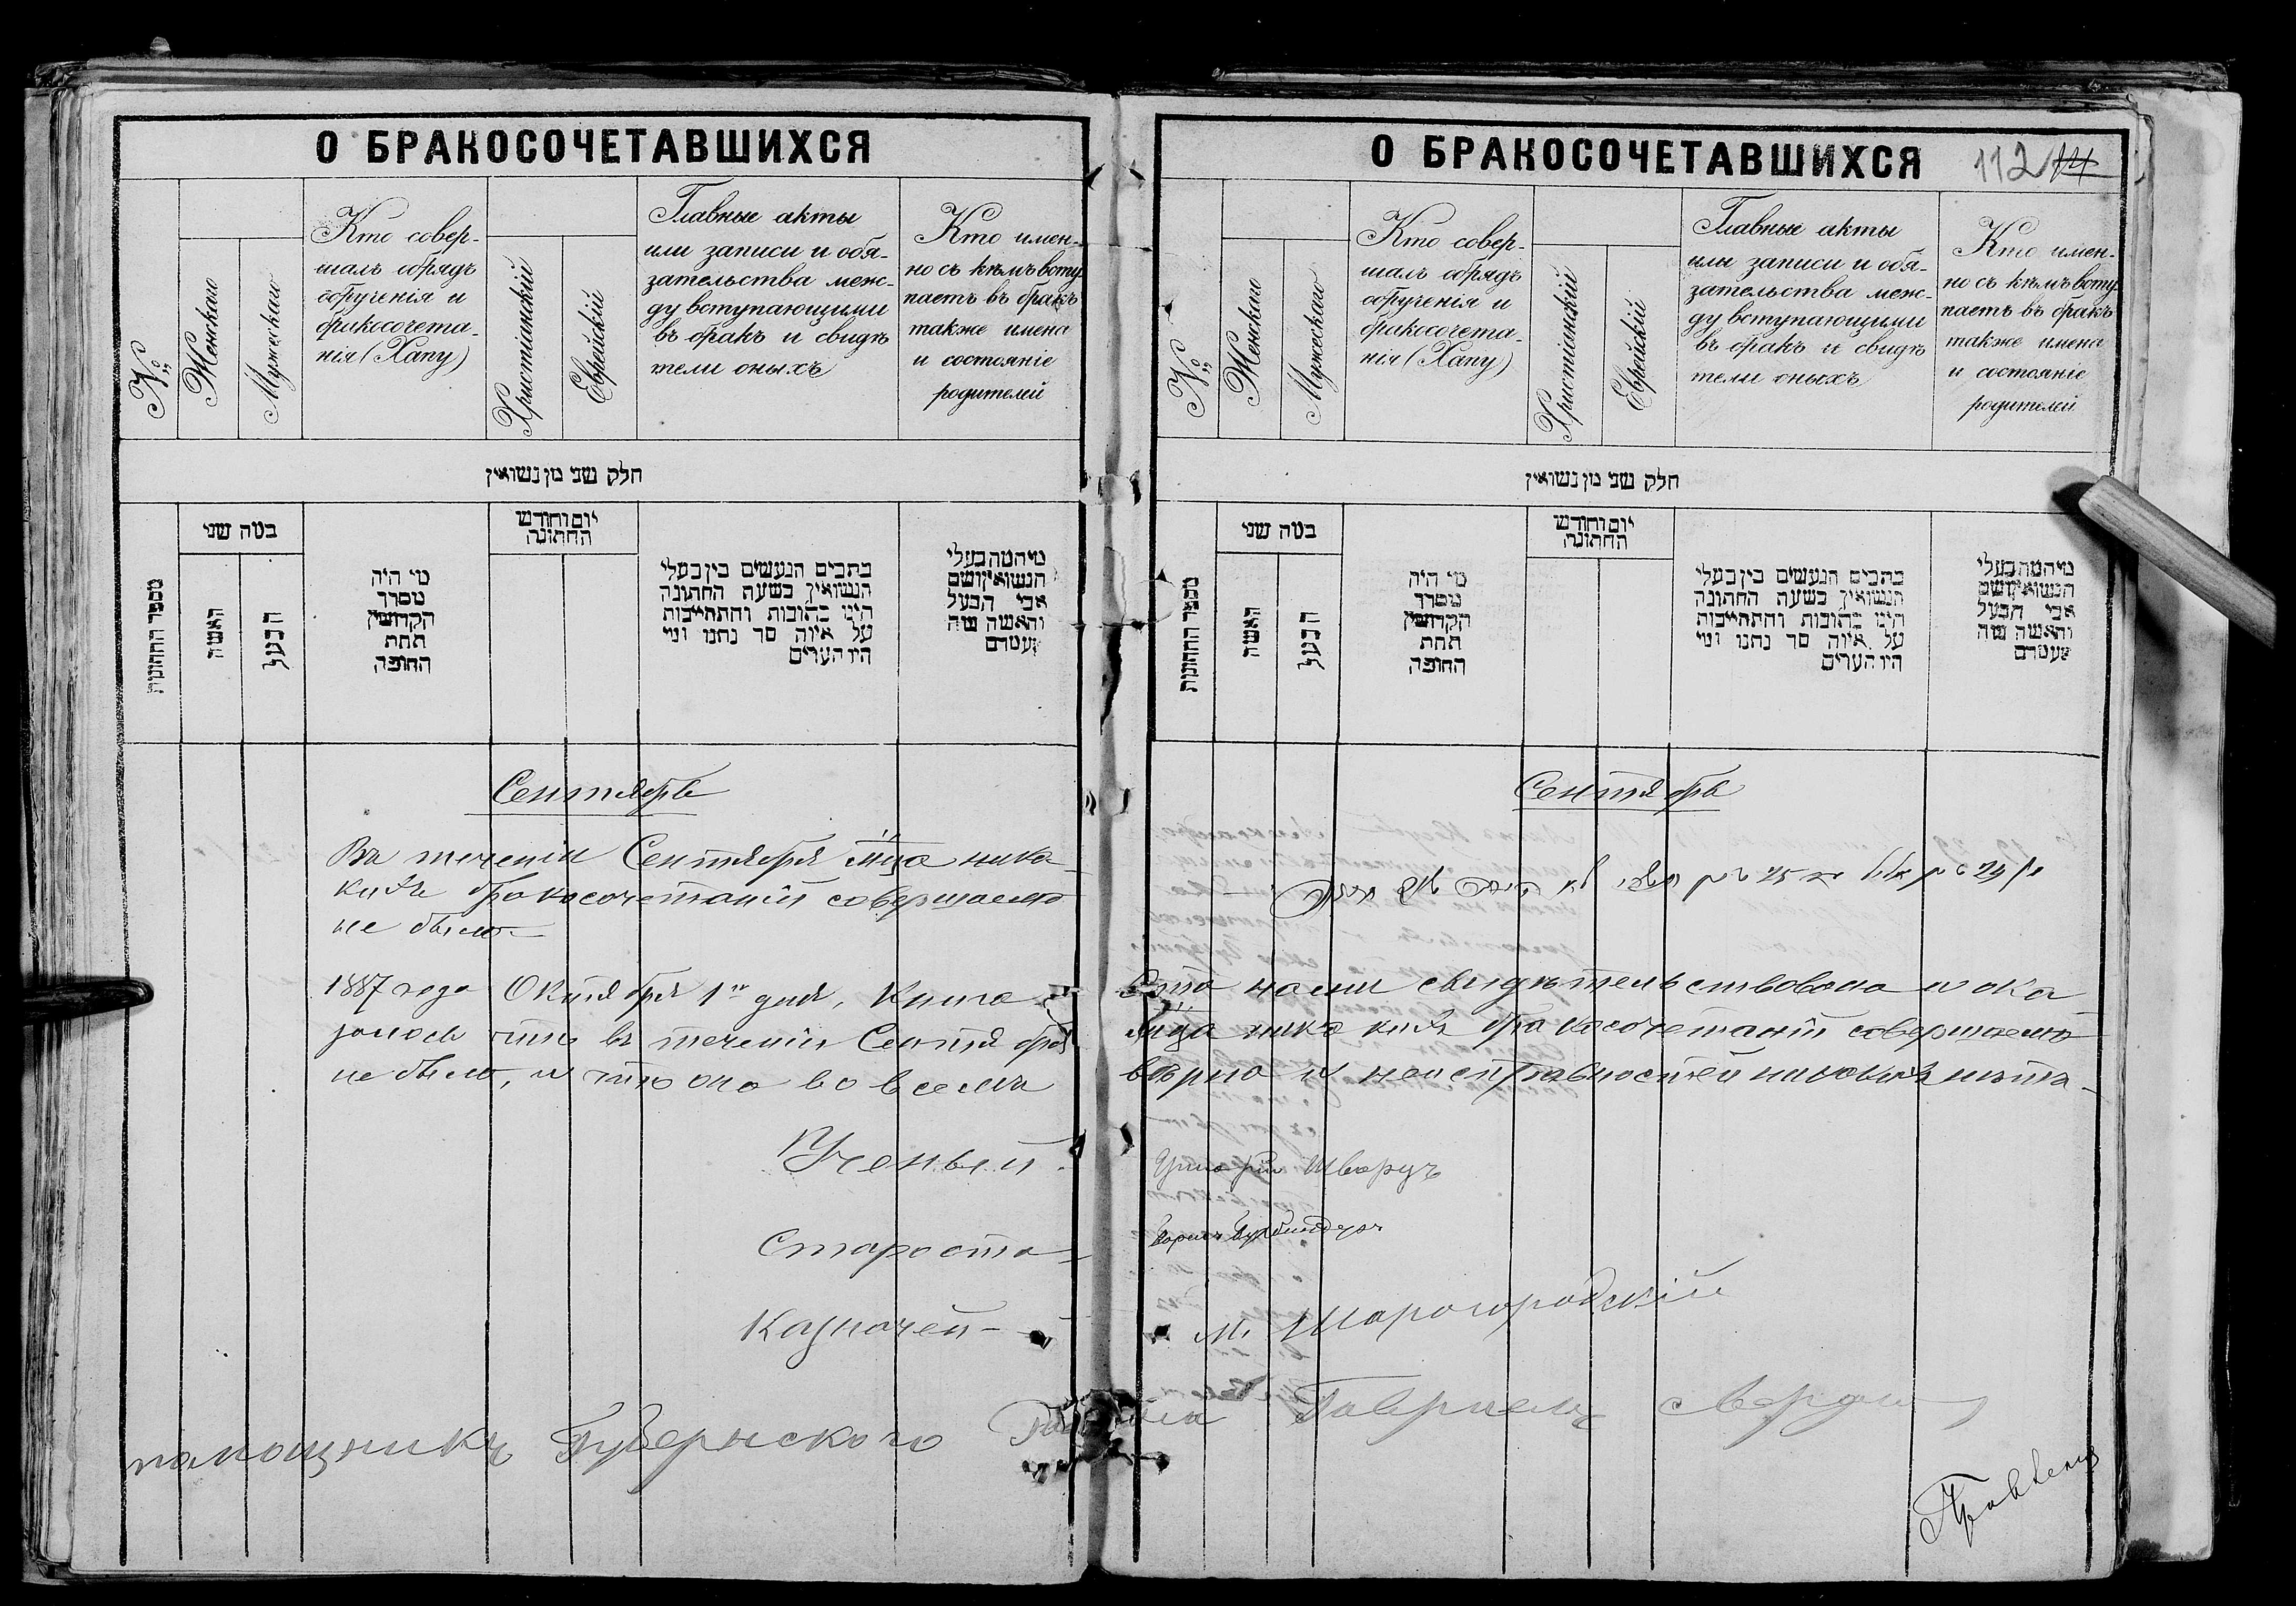 О БРАКОСОЧЕТАВШИХСЯ
№
Женскаго
Мужескаго
Кто совер-
шалъ обрядъ
обрученія и
бракосочета-
нія (Хапу)
Христіанскій
Еврейскій
Главные акты
или записи и обя-
зательства меж-
ду вступающими
въ бракъ и свидѣ
тели оныхъ
Кто имен-
но съ кѣмъ всту
паетъ въ бракъ
также имена
и состояніе
родителей
חלק שני מן נשואין
מספר החתונות
כמה שני
האשה
הבעל
מי היה
מסדר
הקדושין
תחת
החופה
יום וחודש
החתונה
כתבים הנעשים בין בעלי
הנשואין בשעת החתונה
היינו כתובות והתחייבות
על איזה סך נתנו ומי
היו העדים
מי המה בעלי
הנשואין ושם
אבי הבעל
והאשה ומה
מעמדם
Сентябрь
Въ теченіи Сентября м-ца ника-
кихъ бракосочетаній совершаемо
не было
1887 года Октября 1го дня, Книга
залось что въ теченіи Сентября
не было, и что она во всемъ
Ученый
Староста
Казначей
помощникъ Губернского
О БРАКОСОЧЕТАВШИХСЯ
112
№
Женскаго
Мужескаго
Кто совер-
шалъ обрядъ
обрученія и
бракосочета-
нія (Хапу)
Христіанскій
Еврейскій
Главные акты
или записи и обя-
зательства меж-
ду вступающими
въ бракъ и свидѣ
тели оныхъ
Кто имен-
но съ кѣмъ всту
паетъ въ бракъ
также имена
и состояніе
родителей
חלק שני מן נשואין
מספר החתונות
כמה שני
האשה
הבעל
מי היה
מסדר
הקדושין
תחת
החופה
יום וחודש
החתונה
כתבים הנעשים בין בעלי
הנשואין בשעת החתונה
היינו כתובות והתחייבות
על איזה סך נתנו ומי
היו העדים
מי המה בעלי
הנשואין ושם
אבי הבעל
והאשה ומה
מעמדם
Сентябрь
эта нами свидѣтельствована и ока
м-ца никакихъ бракосочетаній совершаемо
вѣрно и неисправностей никакихъ нѣтъ
Шварцъ
М. Шарогородскій
Гавриелъ